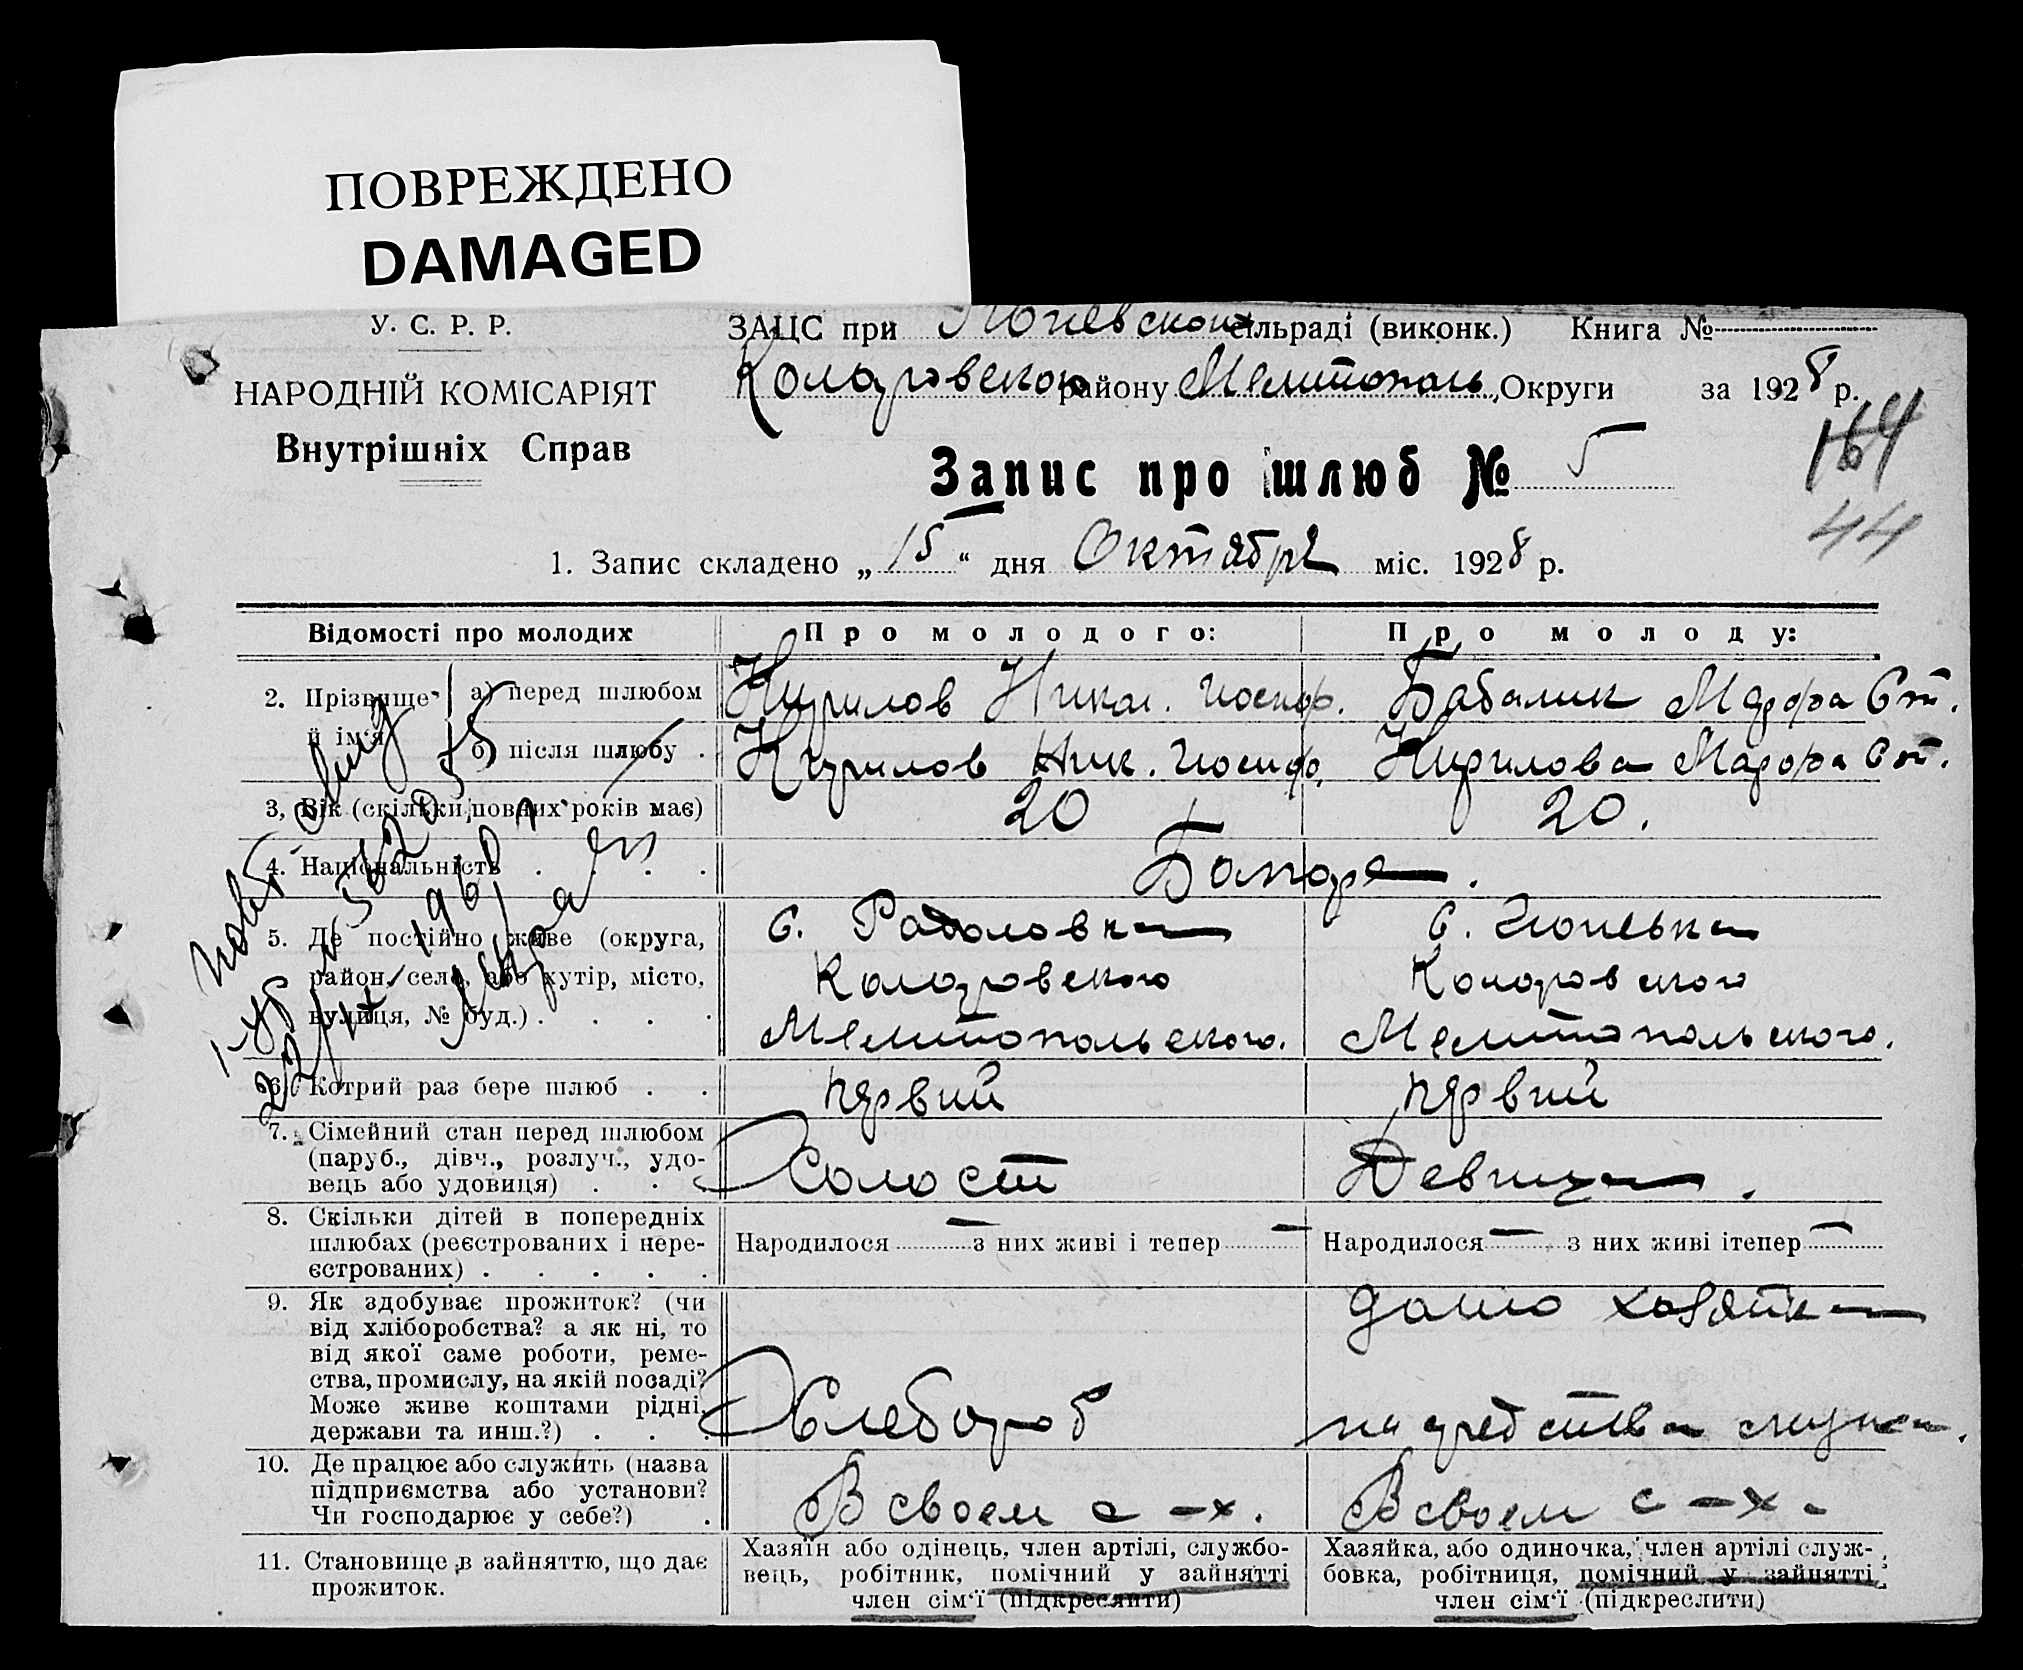 ПОВРЕЖДЕНО
DAMAGED
У. С. Р. Р.
ЗАЦС при Гюневском сільраді (виконк.) Книга №
НАРОДНІЙ КОМІСАРІЯТ
Коларовского району Мелитополь Округи за 1928 р.
Внутрішніх Справ
164
Запис про шлюб № 5
44
1. Запис складено „ 15 “ дня Октября міс. 1928 р.
Відомості про молодих
Про молодого:
Про молоду:
2. Прізвище й ім'я
а) перед шлюбом
Кирилов Никол. Иосиф.
Бабалик Марфа Ст.
б) після шлюбу
Кирилов Ник. Иосиф.
Кирилова Марфа Ст.
3, Вік (скільки повних років має)
20
20.
4. Національність
Болгаре.
5. Де постійно живе (округа,
район, село, або хутір, місто,
вулиця, № буд.)
С. Радоловка
Коларовского
Мелитопольского.
С. Гюневка
Коларовского
Мелитопольского.
6. Котрий раз бере шлюб
первий
первий
7. Сімейний стан перед шлюбом
(паруб., дівч., розлуч., удо-
вець або удовиця)
Холост
Девица.
8. Скільки дітей в попередніх
шлюбах (реєстрованих і нере-
єстрованих)
Народилося — з них живі і тепер —
Народилося — з них живі ітепер —
9. Як здобуває прожиток? (чи
від хліборобства? а як ні, то
від якої саме роботи, реме-
ства, промислу, на якій посаді?
Може живе коштами рідні,
держави та инш.?)
Хлебороб
домохозяйка
на средства мужа.
10. Де працює або служить (назва
підприємства або установи?
Чи господарює у себе?)
В своем с-х.
В своем с-х.
11. Становище в зайняттю, що дає
прожиток.
Хазяїн або одінець, член артілі, службо-
вець, робітник, помічний у зайнятті
член сім'ї (підкреслити)
Хазяйка, або одиночка, член артілі служ-
бовка, робітниця, помічний у зайнятті
член сім'ї (підкреслити)